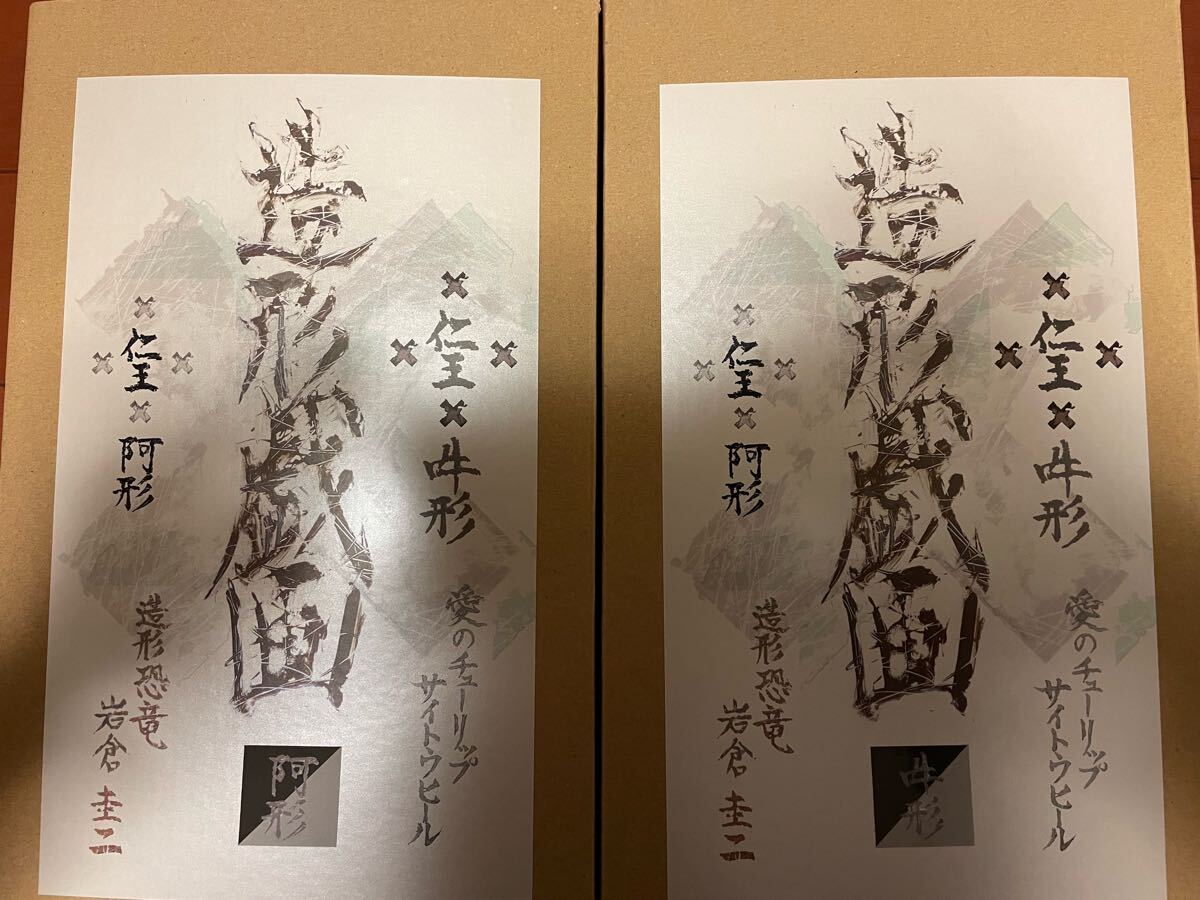 仁王 吽形
愛のチューリップ
サイトウヒール
造形戯画
阿形
仁王 阿形
造形恐竜
岩倉 圭二
仁王 吽形
愛のチューリップ
サイトウヒール
造形戯画
吽形
仁王 阿形
造形恐竜
岩倉 圭二